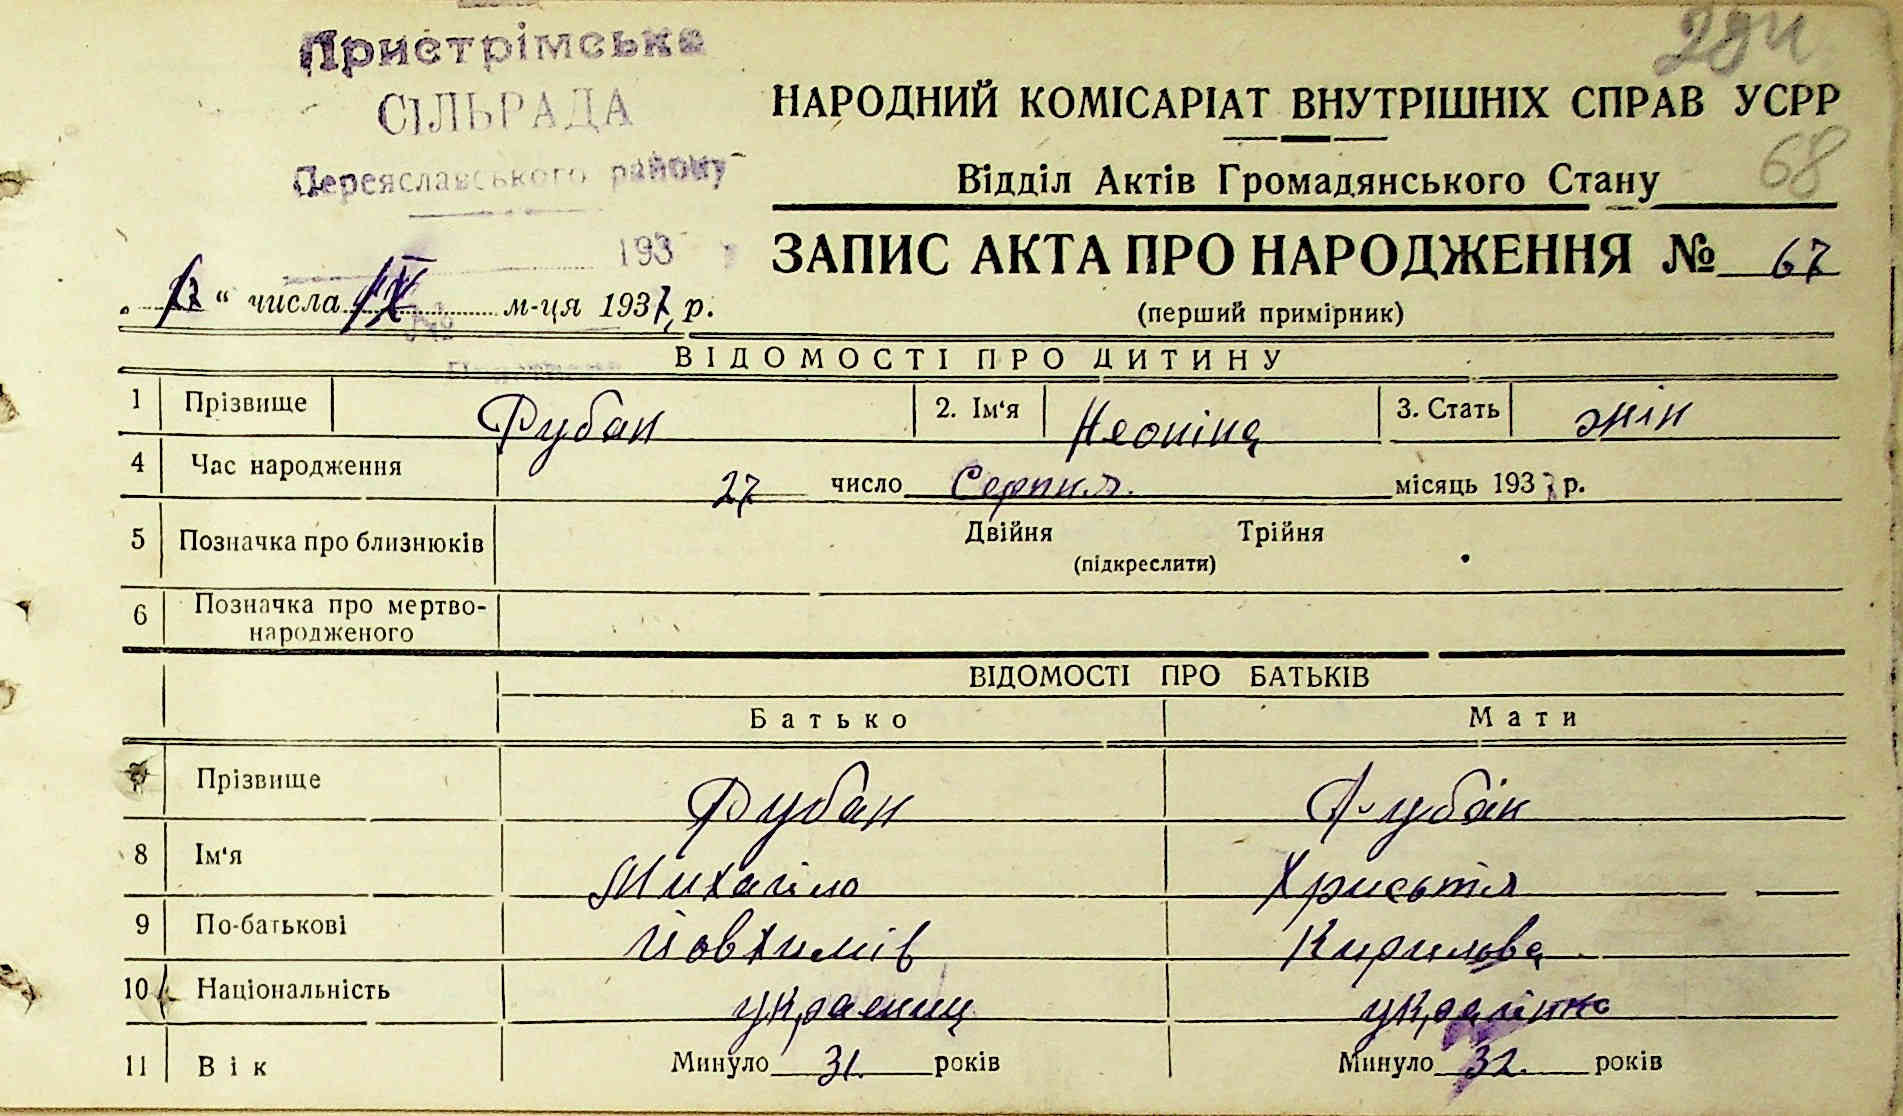 294
Пристрімська
СІЛЬРАДА
Переяславського району
193
НАРОДНИЙ КОМІСАРІАТ ВНУТРІШНІХ СПРАВ УСРР
68
Відділ Актів Громадянського Стану
ЗАПИС АКТА ПРО НАРОДЖЕННЯ № 67
„ “ числа IX м-ця 1937 р.
(перший примірник)
ВІДОМОСТІ ПРО ДИТИНУ
1 Прізвище Рубан 2. Ім‘я Неоніна 3. Стать жін
4 Час народження 27 число Серпня місяць 1937 р.
5 Позначка про близнюків Двійня Трійня
(підкреслити)
6 Позначка про мертво-
народженого
ВІДОМОСТІ ПРО БАТЬКІВ
Батько Мати
7 Прізвище Рубан Рубан
8 Ім‘я Михаіло Христія
9 По-батькові Йовхимів Кирилова
10 Національність украениц українка
11 Вік Минуло 31. років Минуло 32. років